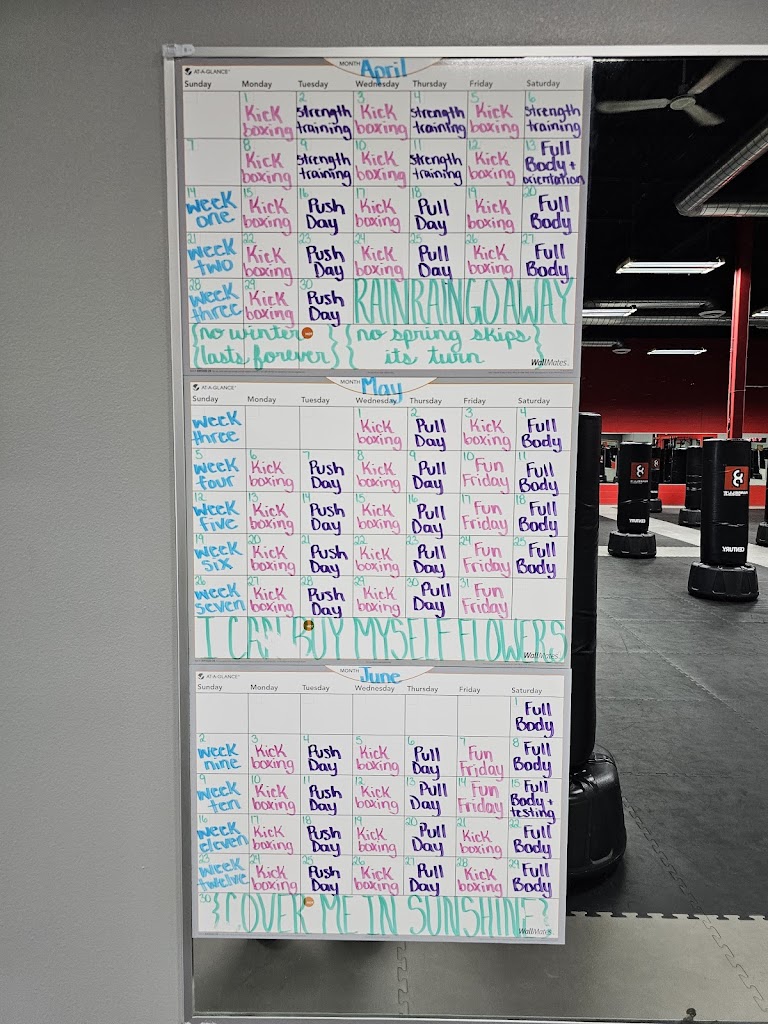 AT-A-GLANCE
MONTH April
Sunday Monday Tuesday Wednesday Thursday Friday Saturday
1 2 3 4 5 6
Kick boxing strength training Kick boxing strength training Kick boxing strength training
7 8 9 10 11 12 13
Kick boxing strength training Kick boxing strength training Kick boxing Full Body + orientation
14 15 16 17 18 19 20
week one Kick boxing Push Day Kick boxing Pull Day Kick boxing Full Body
21 22 23 24 25 26 27
week two Kick boxing Push Day Kick boxing Pull Day Kick boxing Full Body
28 29 30
week three Kick boxing Push Day RAIN RAIN GO AWAY
{no winter lasts forever} {no spring skips its turn}
WallMates
AT-A-GLANCE
MONTH May
Sunday Monday Tuesday Wednesday Thursday Friday Saturday
1 2 3 4
week three Kick boxing Pull Day Kick boxing Full Body
5 6 7 8 9 10 11
week four Kick boxing Push Day Kick boxing Pull Day Fun Friday Full Body
12 13 14 15 16 17 18
week five Kick boxing Push Day Kick boxing Pull Day Fun Friday Full Body
19 20 21 22 23 24 25
week six Kick boxing Push Day Kick boxing Pull Day Fun Friday Full Body
26 27 28 29 30 31
week seven Kick boxing Push Day Kick boxing Pull Day Fun Friday
I CAN BUY MYSELF FLOWERS
WallMates
AT-A-GLANCE
MONTH June
Sunday Monday Tuesday Wednesday Thursday Friday Saturday
1
Full Body
2 3 4 5 6 7 8
week nine Kick boxing Push Day Kick boxing Pull Day Fun Friday Full Body
9 10 11 12 13 14 15
week ten Kick boxing Push Day Kick boxing Pull Day Fun Friday Full Body + testing
16 17 18 19 20 21 22
week eleven Kick boxing Push Day Kick boxing Pull Day Kick boxing Full Body
23 24 25 26 27 28 29
week twelve Kick boxing Push Day Kick boxing Pull Day Kick boxing Full Body
30
{COVER ME IN SUNSHINE}
WallMates